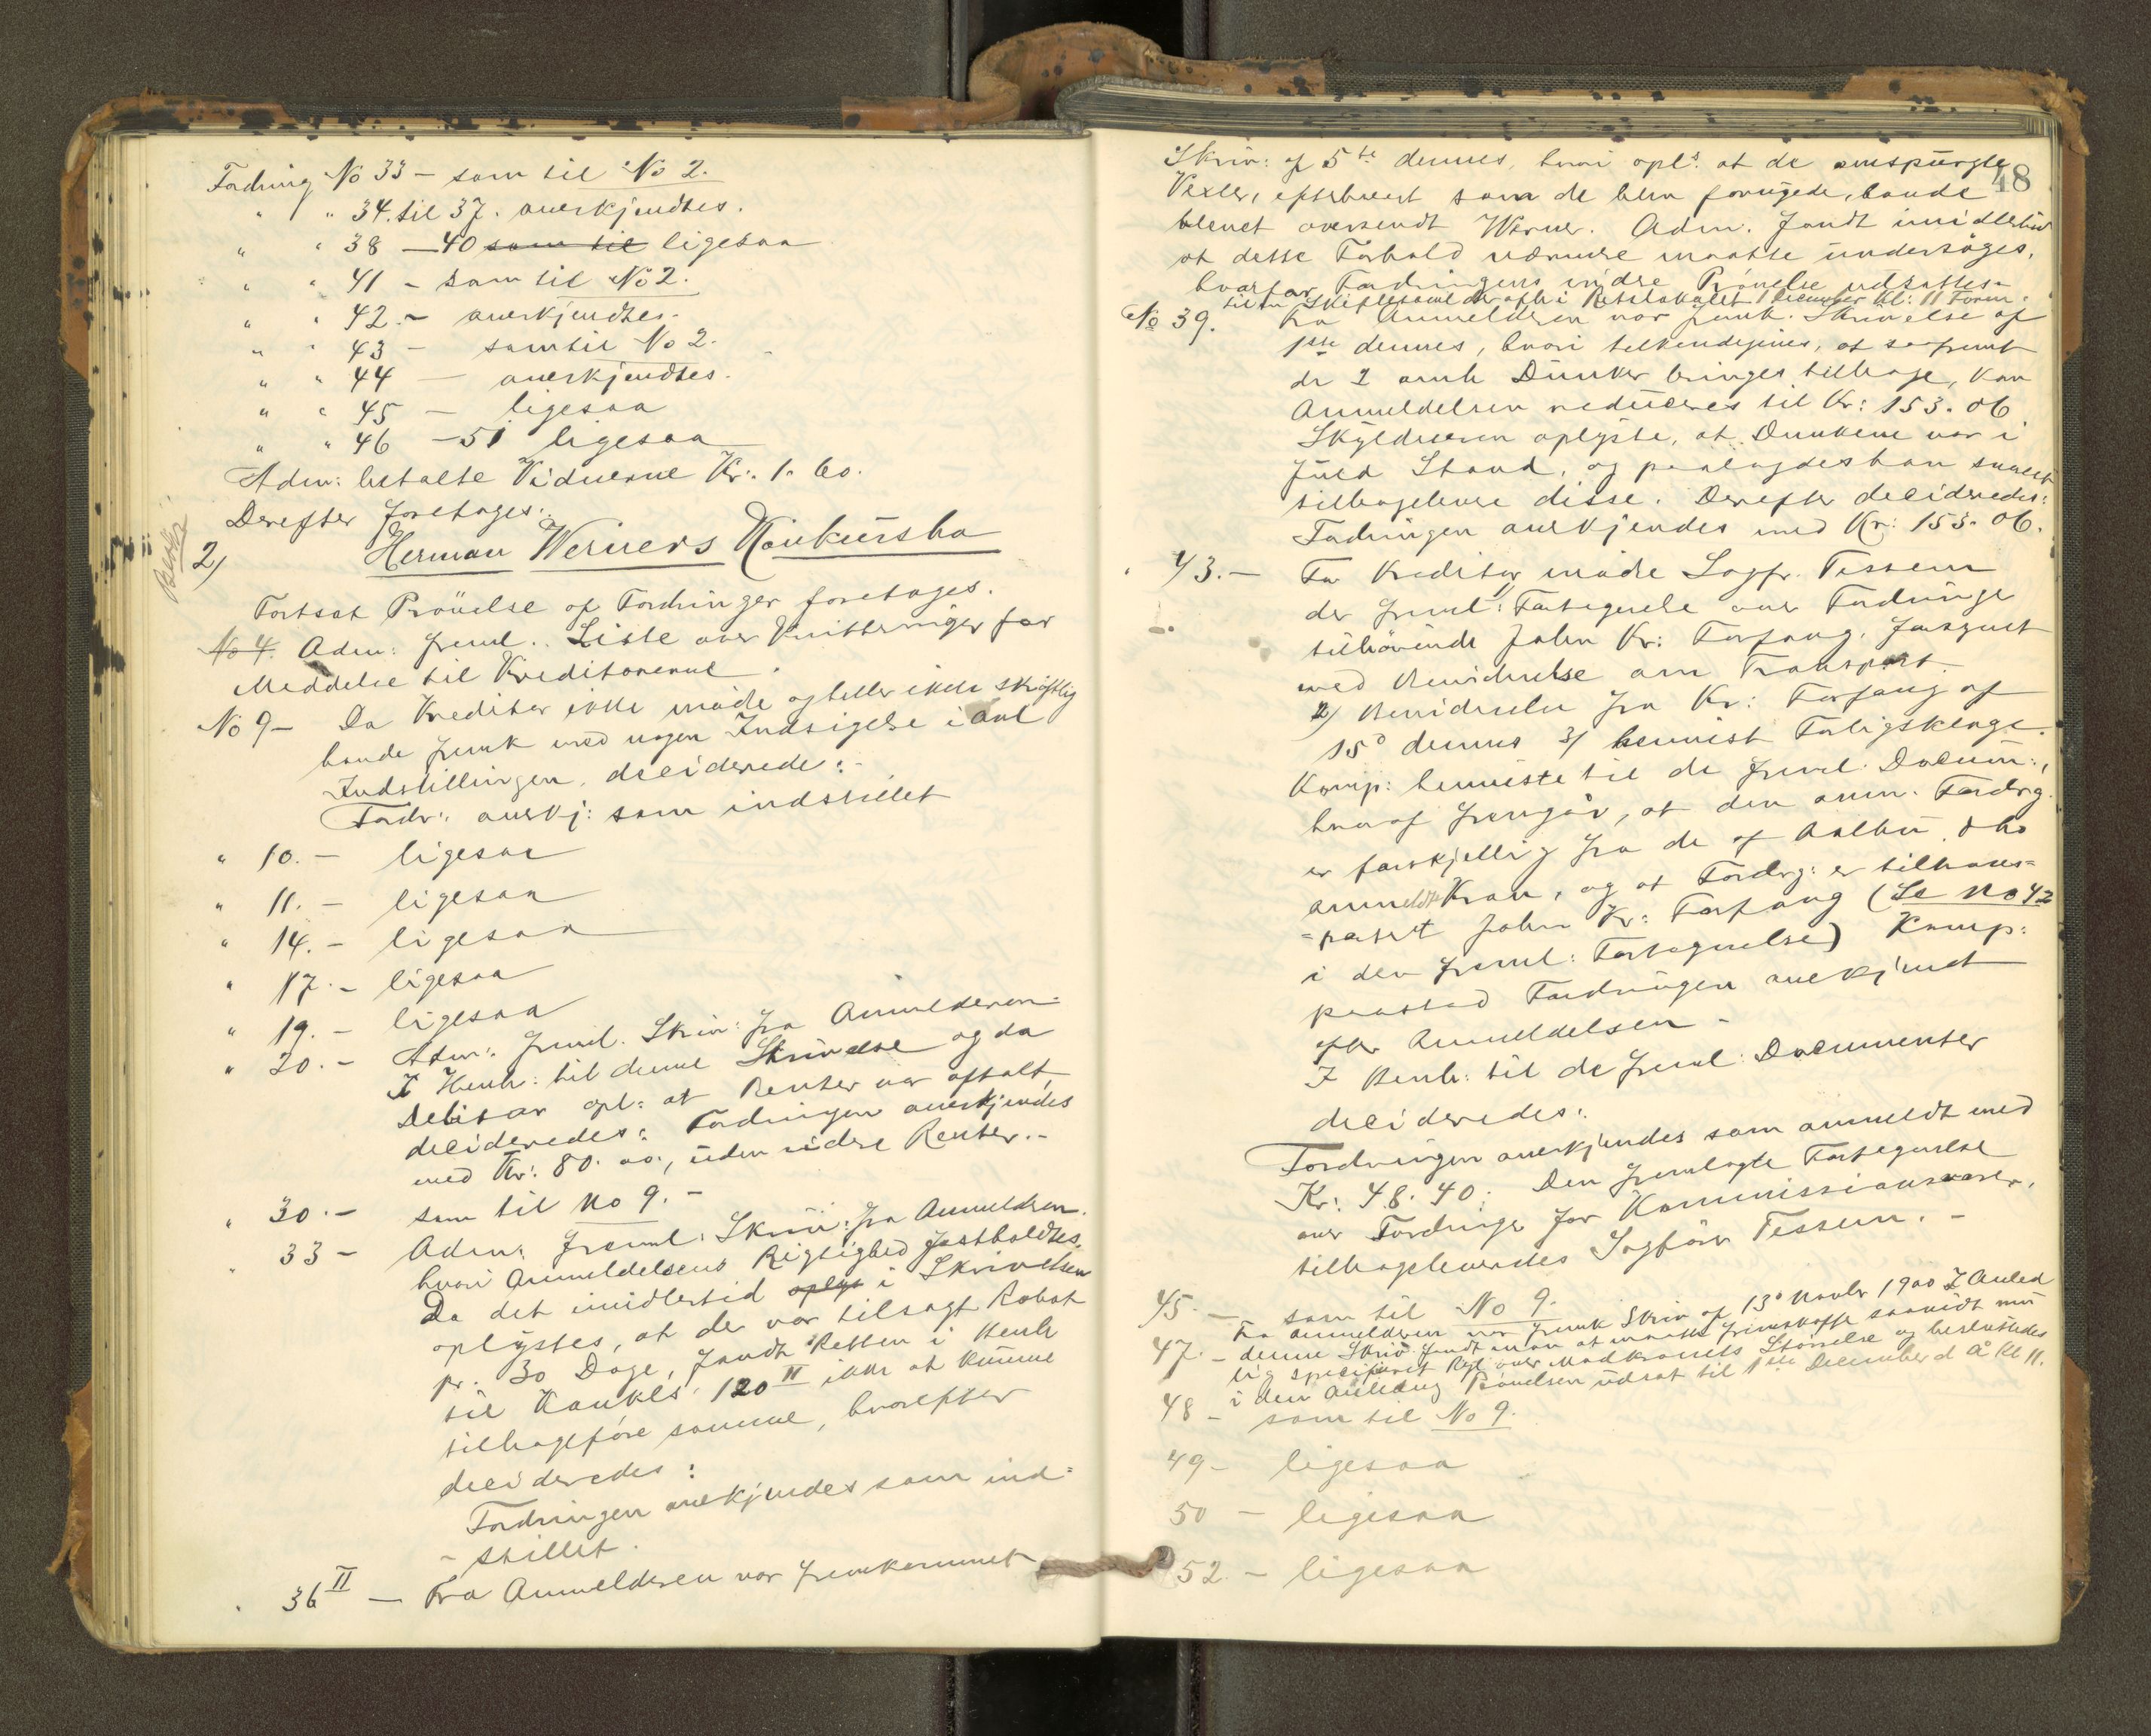 Fordring No 33 – som til No 2.
" " 34. til 37. anerkjendtes.
" " 38 – 40 som til ligesaa
" " 41 – som til No 2.
" " 42. – anerkjendtes.
" " 43 – som til No 2.
" " 44 – anerkjendtes.
" " 45 – ligesaa
" " 46 – 51 ligesaa
Adm: betalte Vidnerne Kr: 1. 60.
Derefter foretages:
2) Herman Werners Konkursbo
Fortsat Prövelse af Fordringer foretages.
No 4. Adm: freml. Liste over Kvitteringer for
Meddelse til Kreditorerne.
No 9 – Da Kreditor ikke mödte og heller ikke skriftlig
havde fremk med nogen Indsigelse i anl
Indstillingen, decideredes:
Fordr: anerkj: som indstillet
" 10. – ligesaa
" 11. – ligesaa
" 14. – ligesaa
" 17. – ligesaa
" 19. – ligesaa
" 20. – Adm: freml. Skriv: fra Anmelderen.
I Henh: til denne Skrivelse og da
Debitor opl: at Renter var aftalt,
decideredes: Fordringen anerkjendes
med Kr: 80. oo, uden videre Renter. –
" 30. – som til No 9. –
" 33 – Adm: freml: Skriv: fra Anmelderen.
hvori Anmeldelsens Rigtighed fastholdtes.
Da det imidlertid oplys i Skrivelsen
oplystes, at der var tilsagt Rabat
pr. 30 Dage, fandt Retten i Henh
til Konkls 120 II ikke at kunne
tilbageföre samme, hvorefter
decideredes:
Fordringen anerkjendes som ind=
- stillet.
" 36 II – Fra Anmelderen var fremkommet
48
Skriv: af 5te dennes, hvori opls. at de omspurgte
Vexler, efterhvert som de blev fornyede, havde
blevet oversendt Werner. Adm. fandt imidlertid
at disse Forhold nærmere maatte undersöges,
hvorfor Fordringens videre Prövelse udsattes
til en Skiftesaml der afh i Retslokalet 1 December Kl: 11 Form.
No 39. Fra Anmelderen var fremk. Skrivelse af
1ste dennes, hvori tilkendegives, at saafremt
de 2 anm Dunker bringes tilbage, kan
Anmeldelsen reduceres til Kr: 153. 06
Skyldneren oplyste, at Dunkene var i
fuld Stand, og paalagdes han snarest
tilbagelevere disse. Derefter decideredes:
Fordringen anerkjendes med Kr: 153. 06.
" 43. – For Kreditor mödte Sagfr. Tessem
der freml: Fortegnelse over Fordringer
tilhörende John Kr: Forfang, forsynet
med Bevidnelse om Transport.
2) Bevidnelse fra Kr: Forfang af
15° dennes 3) bevist Forligsklage.
Komp: henviste til de freml. Docum:,
hvoraf fremgår, at den anm. Fordrg.
er forskjellig fra de af Aalbu & Co
anmeldte Krav, og at Fordrg: er tiltrans=
= portert John Kr: Forfang (Se No 42
i den freml: Fortegnelse) Komp:
paastod Fordringen anerkjendt
efter Anmeldelsen –
I Henh: til de freml: Documenter
decideredes:
Fordringen anerkjendes som anmeldt med
Kr: 48. 40. Den fremlagte Fortegnelse
over Fordringer for Kommissionsvarer,
tilbageleveredes Sagförer Tessem. –
45. – som til No 9.
47. – Fra Anmelderen var fremk Skriv af 13° Novbr 1900 I Anled
denne Skriv fandt man at maatte fremskaffe saavidt mu
lig specificeret Regl over Modkravets Störrelse og besluttedes
i den Anledng Prövelsen udsat til 1ste December d A° Kl 11.
48 – som til No 9.
49 – ligesaa
50 – ligesaa
52 – ligesaa